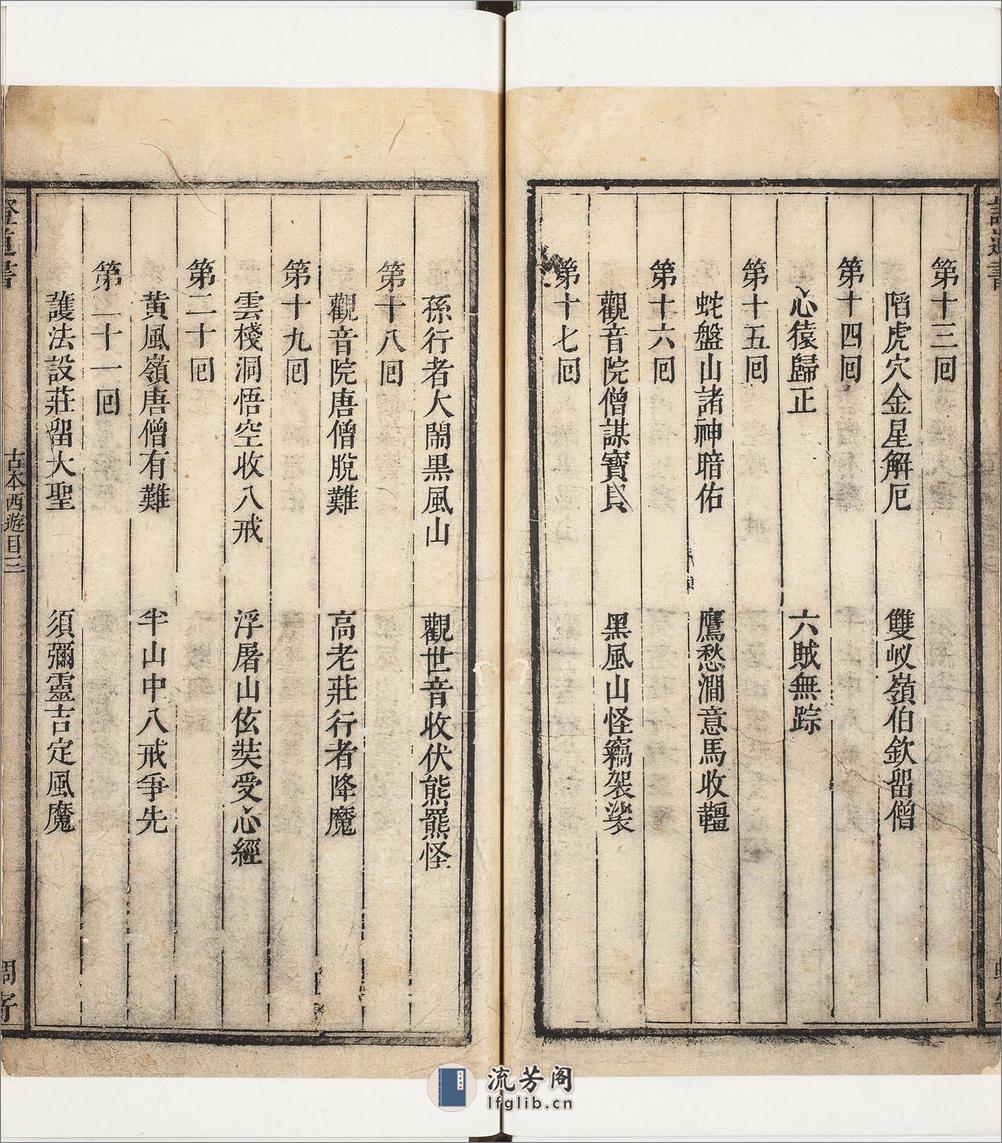 第十三回
陷虎穴金星解厄 雙蚁嶺伯欽留僧
第十四回
心猿歸正 六賊無踪
第十五回
蛇盤山諸神暗佑 鷹愁澗意馬收韁
第十六回
觀音院僧謀寶貝 黑風山怪竊袈裟
第十七回
孫行者大鬧黑風山 觀世音收伏熊羆怪
第十八回
觀音院唐僧脫難 高老莊行者降魔
第十九回
雲棧洞悟空收八戒 浮屠山伭奘受心經
第二十回
黃風嶺唐僧有難 半山中八戒爭先
第二十一回
護法設莊留大聖 須彌靈吉定風魔
證道書
古本西遊目三
流芳阁
lfglib.cn